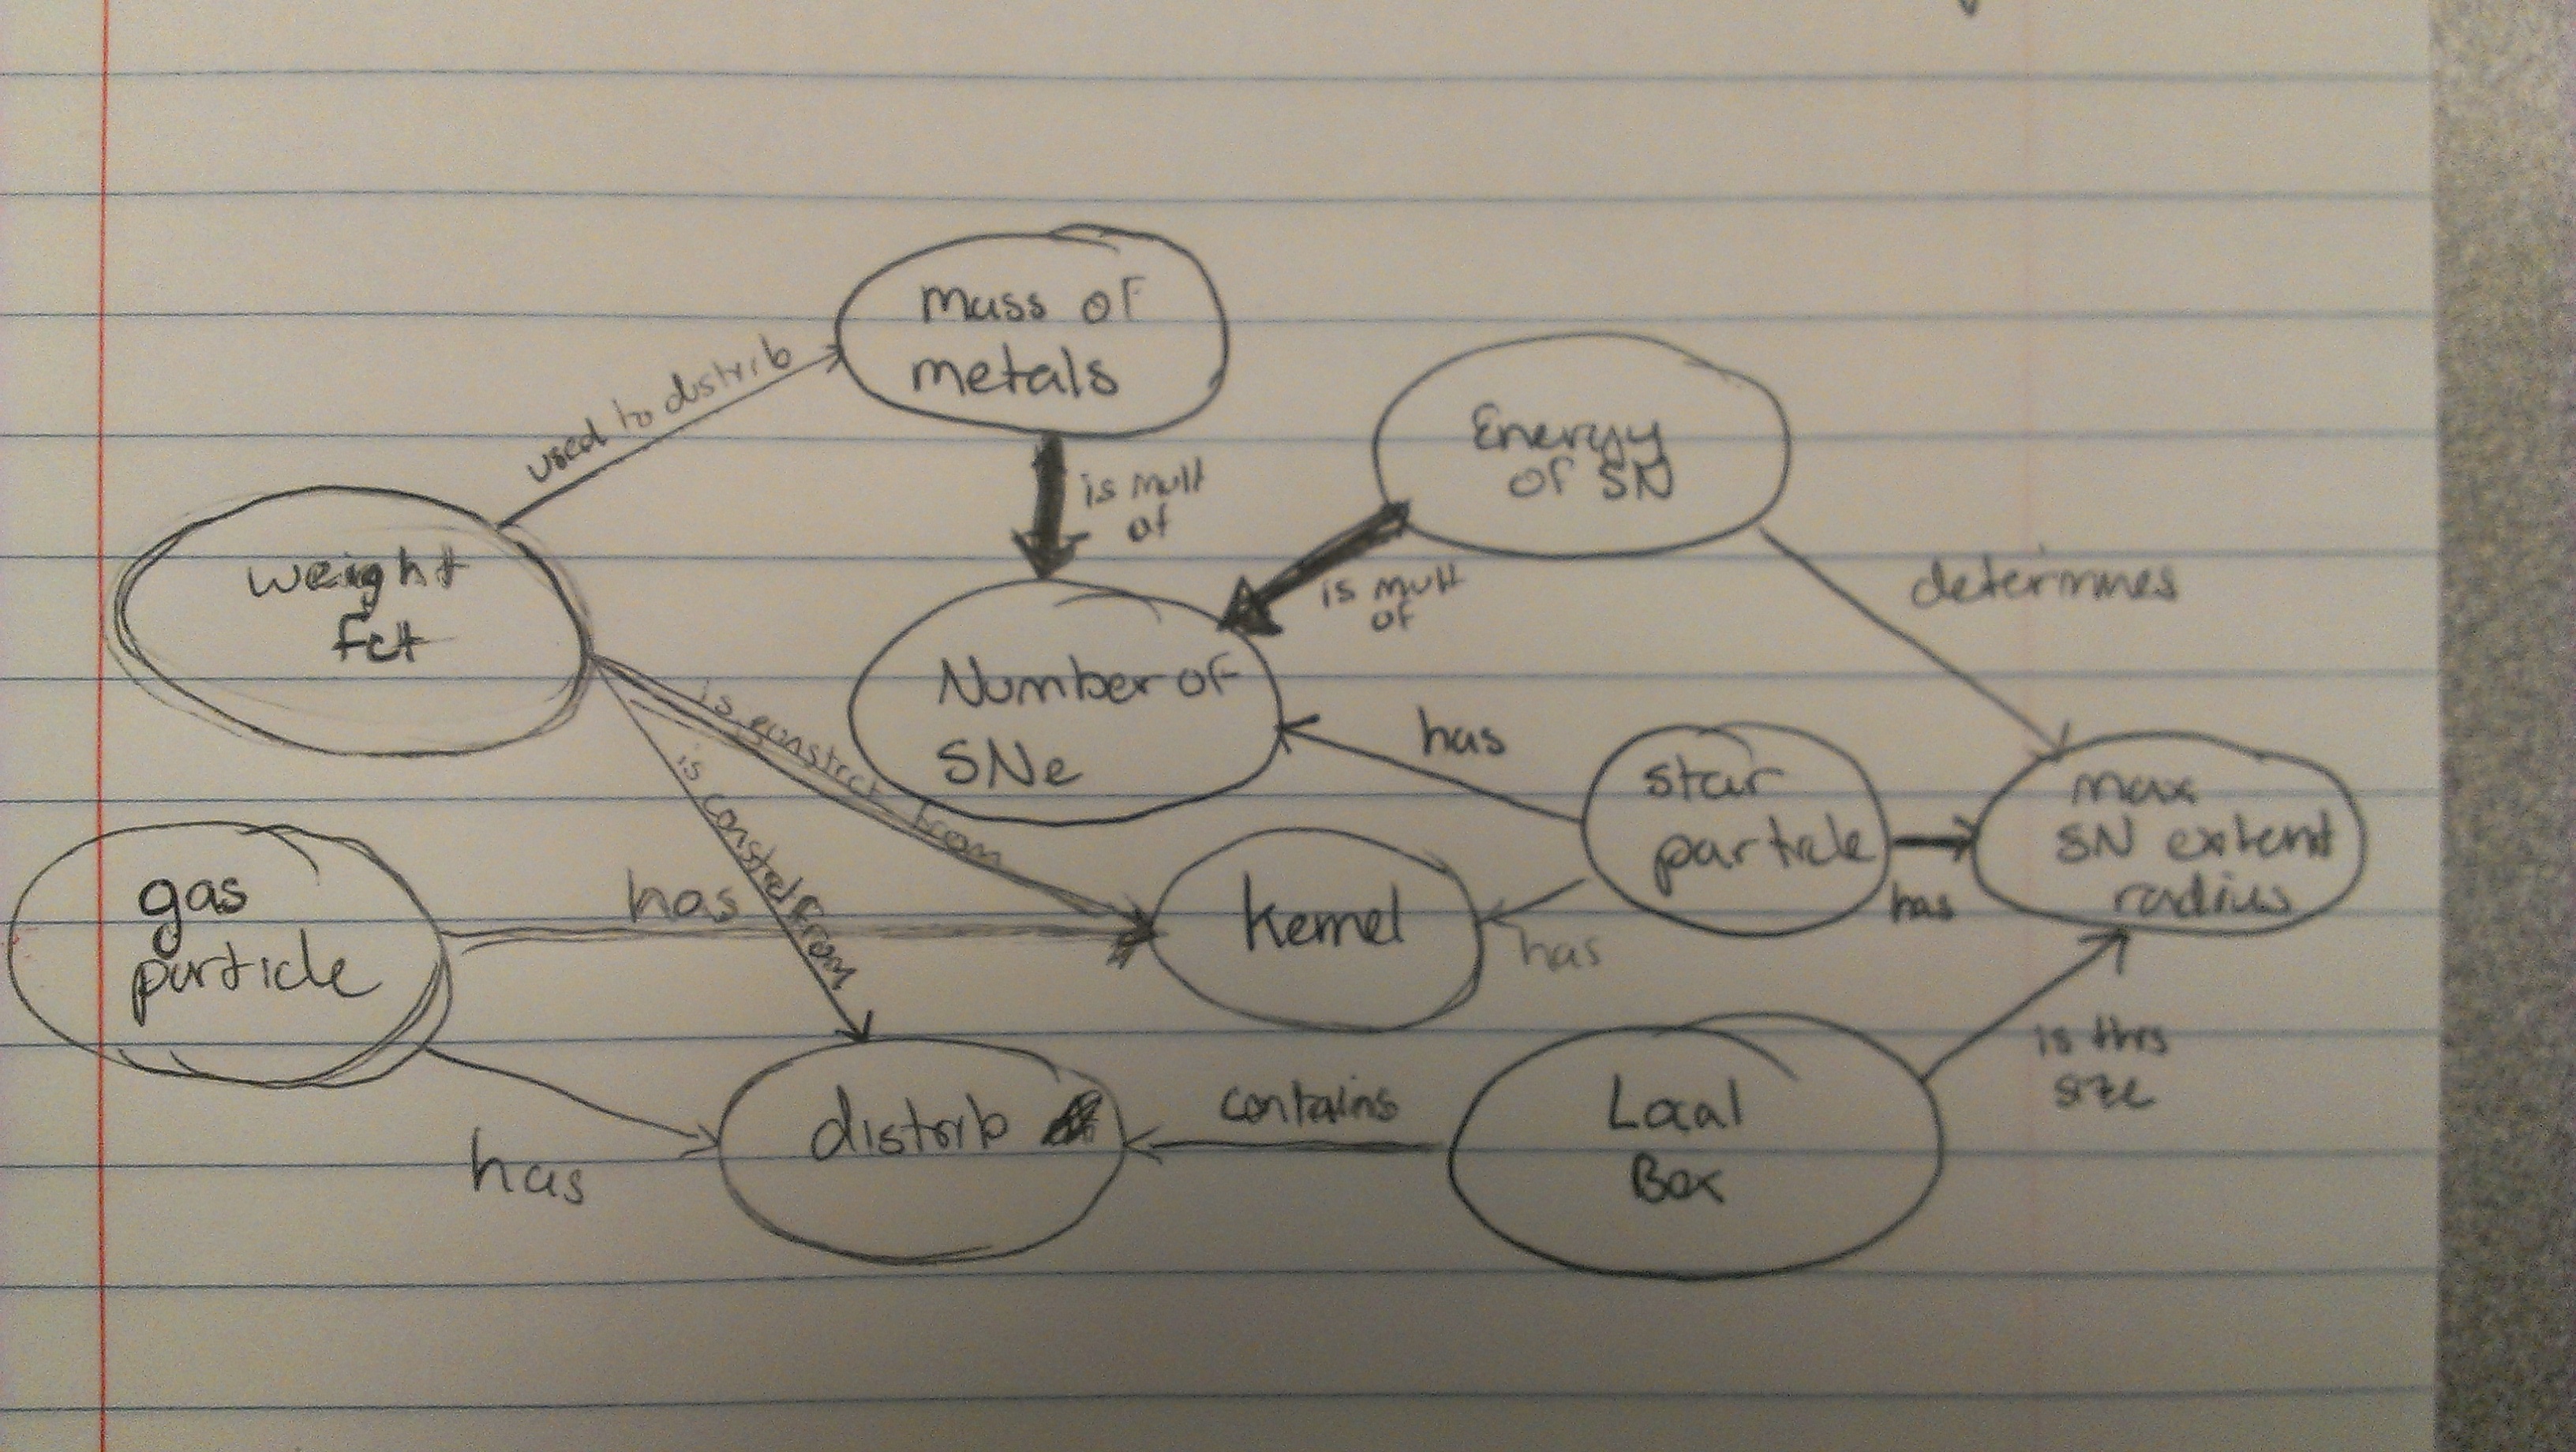 mass of
metals
used to distrib
Energy
of SN
is mult
of
weight
fct
is mult
of
determines
Number of
SNe
is constrct from
is constrctd from
has
star
particle
max
SN extent
radius
has
gas
particle
has
kernel
has
distrib
contains
Local
Box
is this
size
has